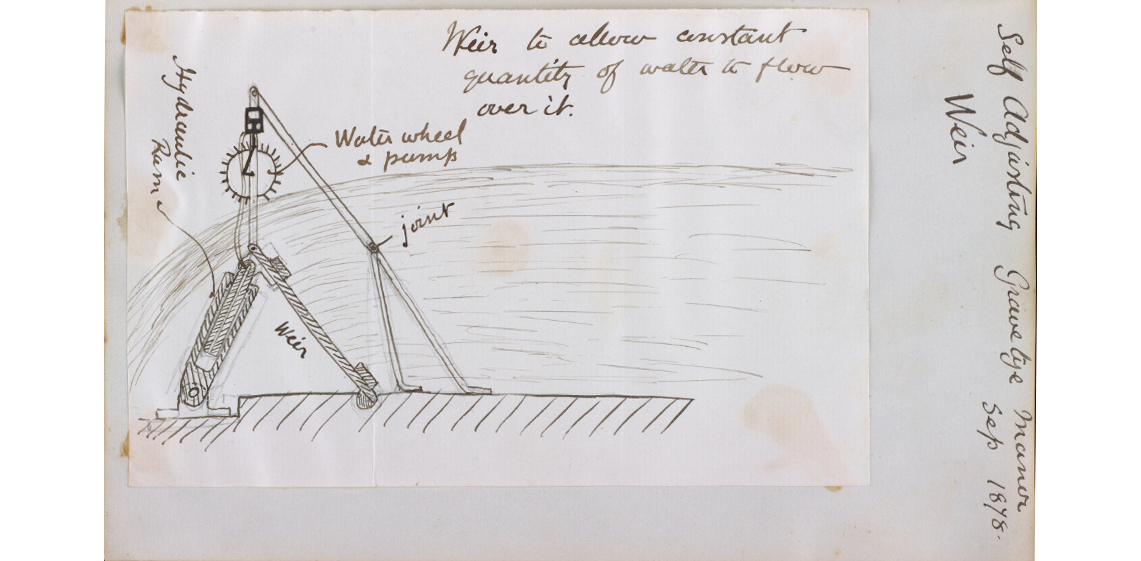 Weir to allow constant
quantity of water to flow
over it.
Hydraulic
Ram
Water wheel
& pump
joint
Weir
Self Adjusting Gravetye Manor
Weir
Sep 1878.